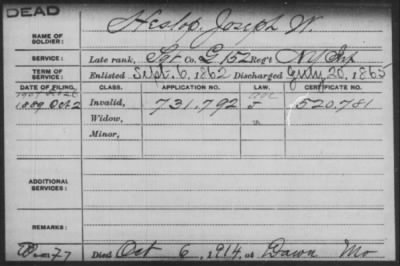 DEAD
NAME OF SOLDIER: Heslop, Joseph W.
SERVICE: Late rank, Sgt Co. G, 152 Reg't N.Y. Inf
TERM OF SERVICE: Enlisted Sept. 6, 1862 Discharged July 20, 1865
DATE OF FILING. CLASS. APPLICATION NO. LAW. CERTIFICATE NO.
1889 Oct 2 Invalid, 731.792 J 520.781
Widow,
Minor,
ADDITIONAL SERVICES:
REMARKS:
Died Oct 6, 1914, at Dawn Mo